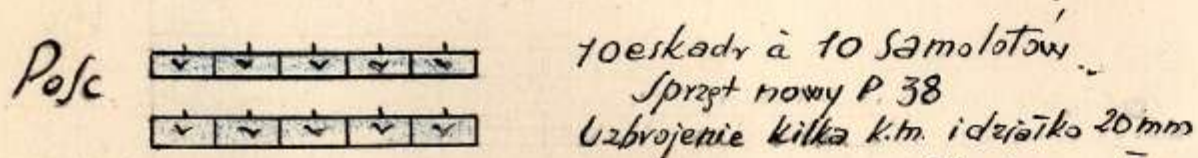 Pośc
10 eskadr à 10 samolotów
Sprzęt nowy P. 38
Uzbrojenie kilka k.m. i działko 20 mm